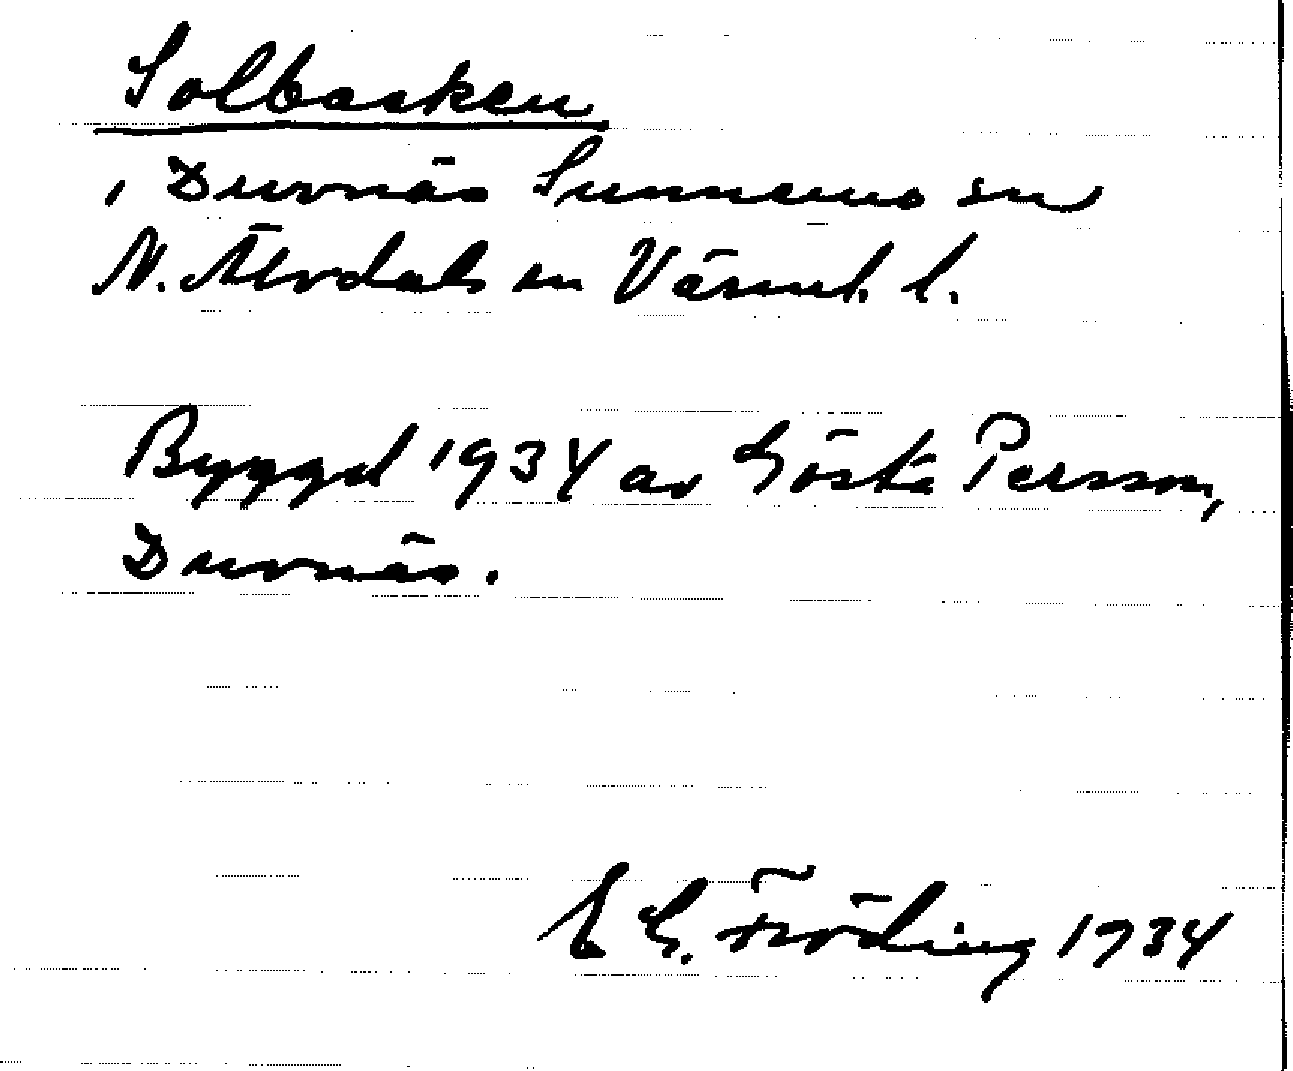 Solbacken
i Duvnäs Sunnemo sn
N. Älvdals sn Värml. l.
Byggd 1934 av Gösta Persson,
Duvnäs.
E G. Fröding 1934